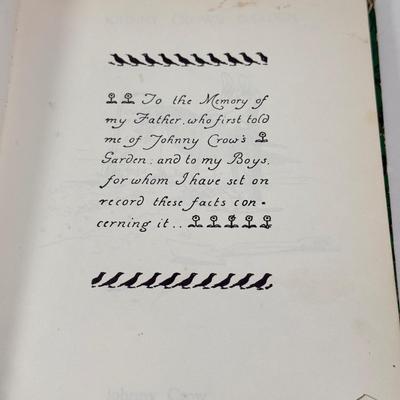 To the Memory of
my Father, who first told
me of Johnny Crow's
Garden; and to my Boys,
for whom I have set on
record these facts con-
cerning it..
Johnny Crow